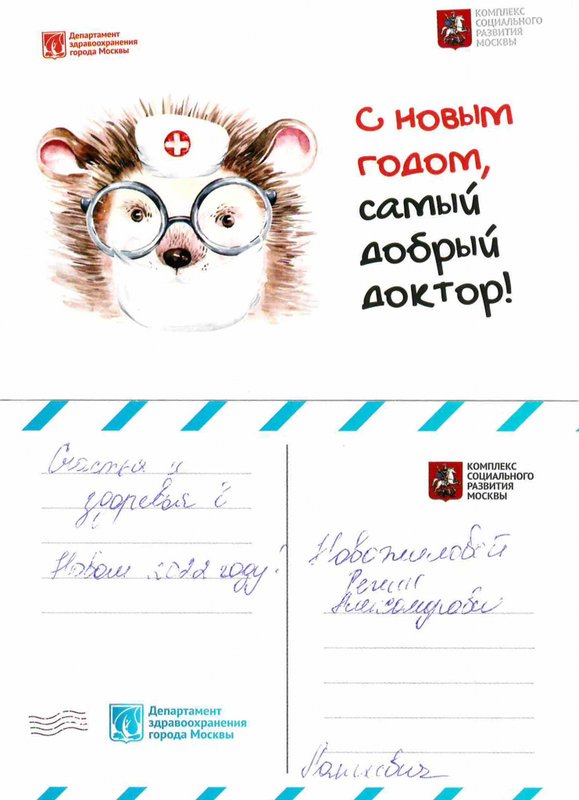 Департамент
здравоохранения
города Москвы
КОМПЛЕКС
СОЦИАЛЬНОГО
РАЗВИТИЯ
МОСКВЫ
С НОВЫМ
ГОДОМ,
САМЫЙ
ДОБРЫЙ
ДОКТОР!
Счастья и
здоровья в
Новом 2022 году!
Департамент
здравоохранения
города Москвы
КОМПЛЕКС
СОЦИАЛЬНОГО
РАЗВИТИЯ
МОСКВЫ
Новожиловой
Регине
Александровне